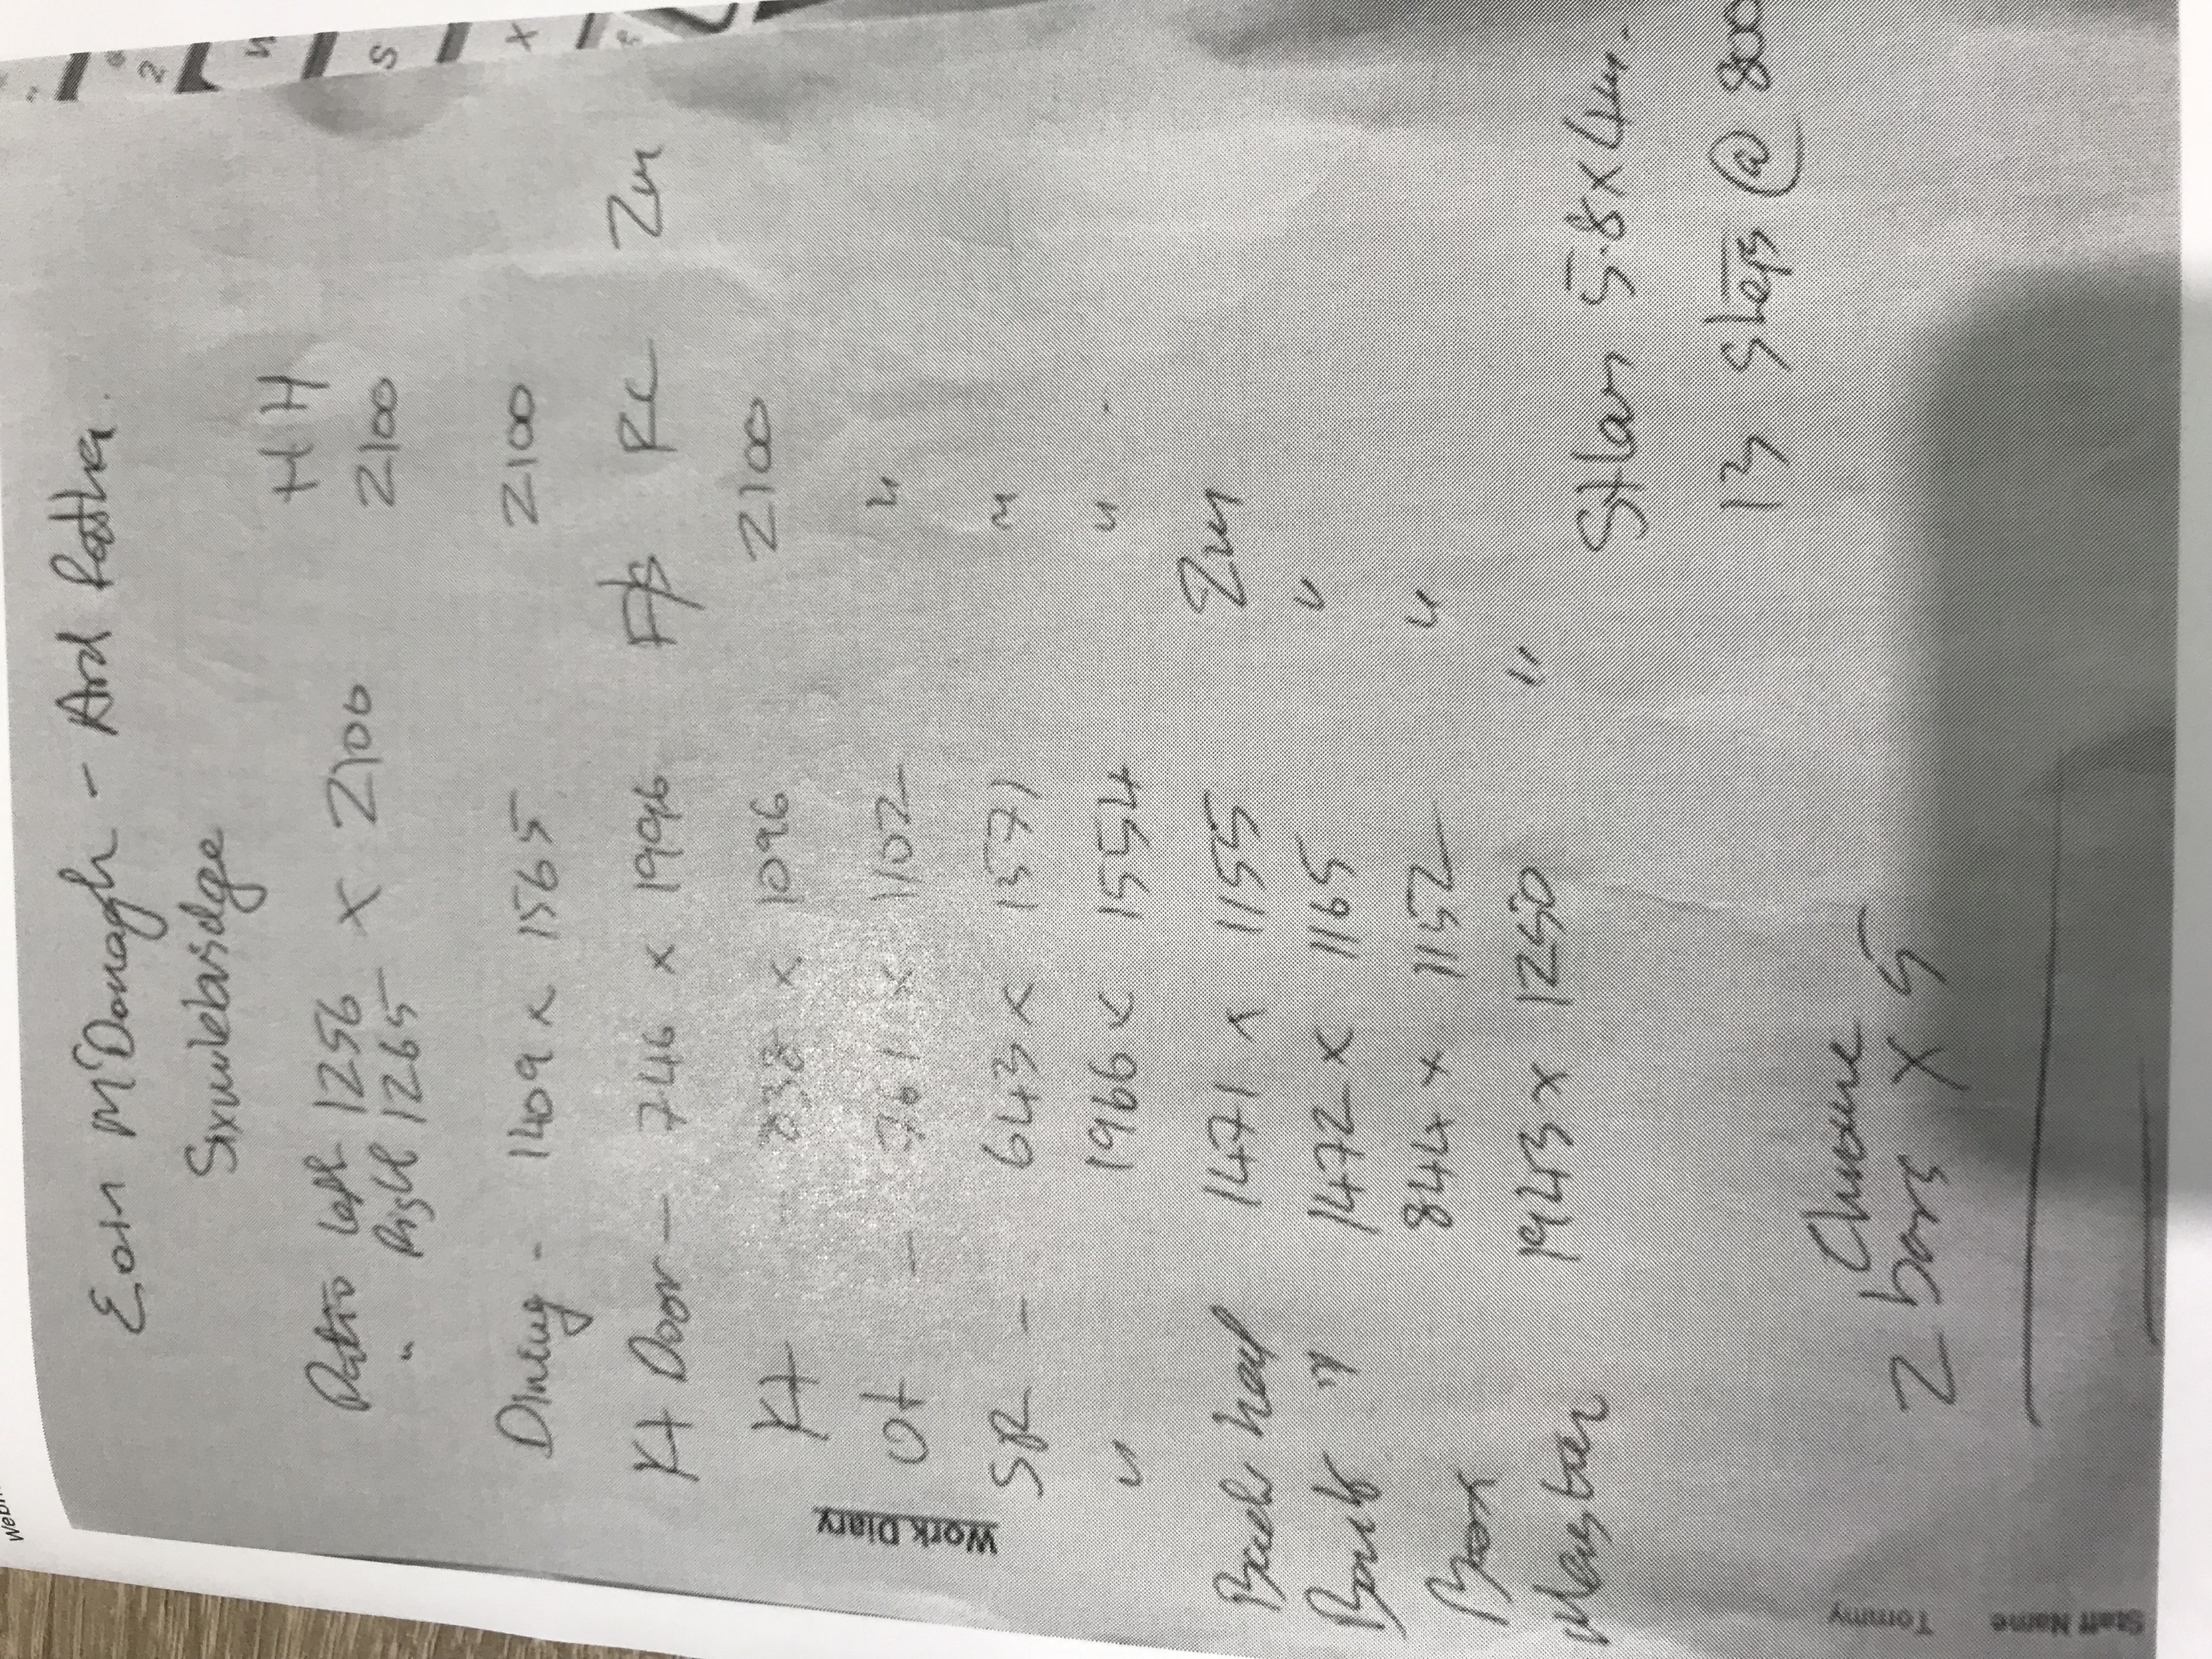 Eoin McDonagh - Ard Patrha.
Sixmilebridge
H H
Patio left 1256 x 2100 2100
" Right 1265
Dining - 1409 x 1565 2100
Kt Door - 746 x 1996 F/B RC 2m
Kt 838 x 1096 2100
Ut - 761 x 1102 "
SR - 643 x 1571 "
" 1966 x 1554 "
Back hall 1471 x 1155 2m
Back " 1472 x 1165 "
Box 844 x 1152 "
Master 1943 x 1250 "
Stairs 5.8 x 4m.
13 Steps @ 800
Chrome
2 bars x 5
Work Diary
Tommy
Staff Name